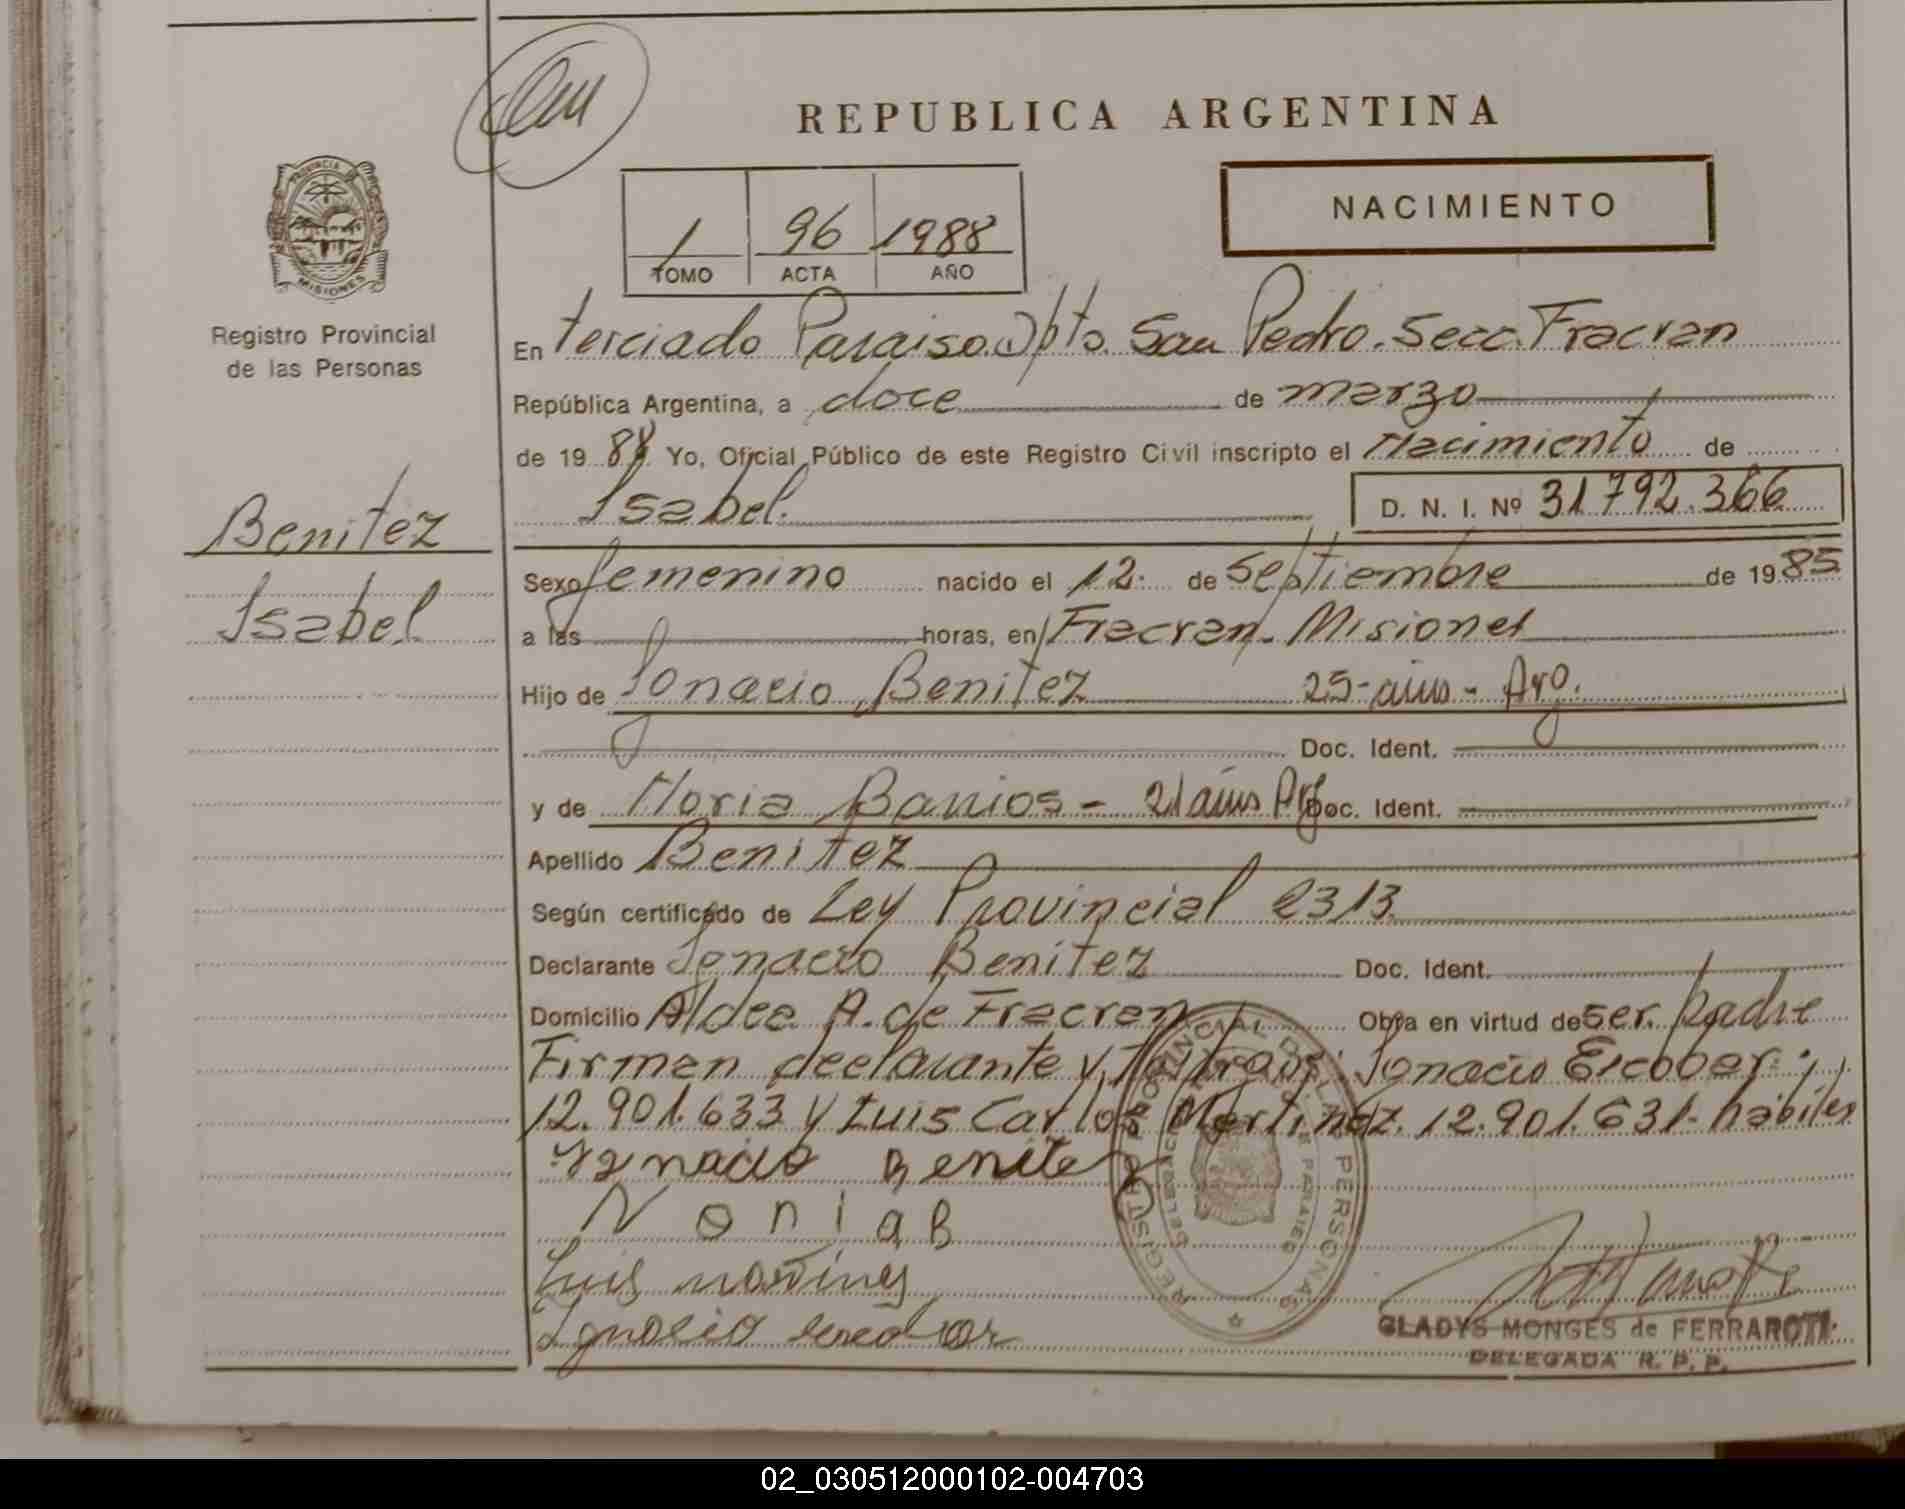 REPUBLICA ARGENTINA
PROVINCIA DE
MISIONES
Registro Provincial
de las Personas
1 96 1988
TOMO ACTA AÑO
NACIMIENTO
En terciado Paraiso Dpto. San Pedro. Secc. Fracran
República Argentina, a doce de marzo
de 19 88 Yo, Oficial Público de este Registro Civil inscripto el Nacimiento de
Isabel. D. N. I. Nº 31.792.366
Benitez
Isabel
Sexo femenino nacido el 12 de Septiembre de 1985
a las horas, en Fracran - Misiones
Hijo de Ignacio Benitez 25 años - Arg.
Doc. Ident.
y de Barrios - 21 años Arg Doc. Ident.
Apellido Benitez
Según certificado de Ley Provincial 2313
Declarante Ignacio Benitez Doc. Ident.
Domicilio Aldea A. de Fracran Obra en virtud de ser padre
Firman declarante y Testigos: Ignacio Escobar:
12.901.633 y Luis Carlos Martinez. 12.901.631- habiles
Ygnacio Benitez
Luis
Ignacio
REGISTRO PROVINCIAL DE LAS PERSONAS
GLADYS MONGES de FERRAROTTI
DELEGADA R. P. P.
02_030512000102-004703